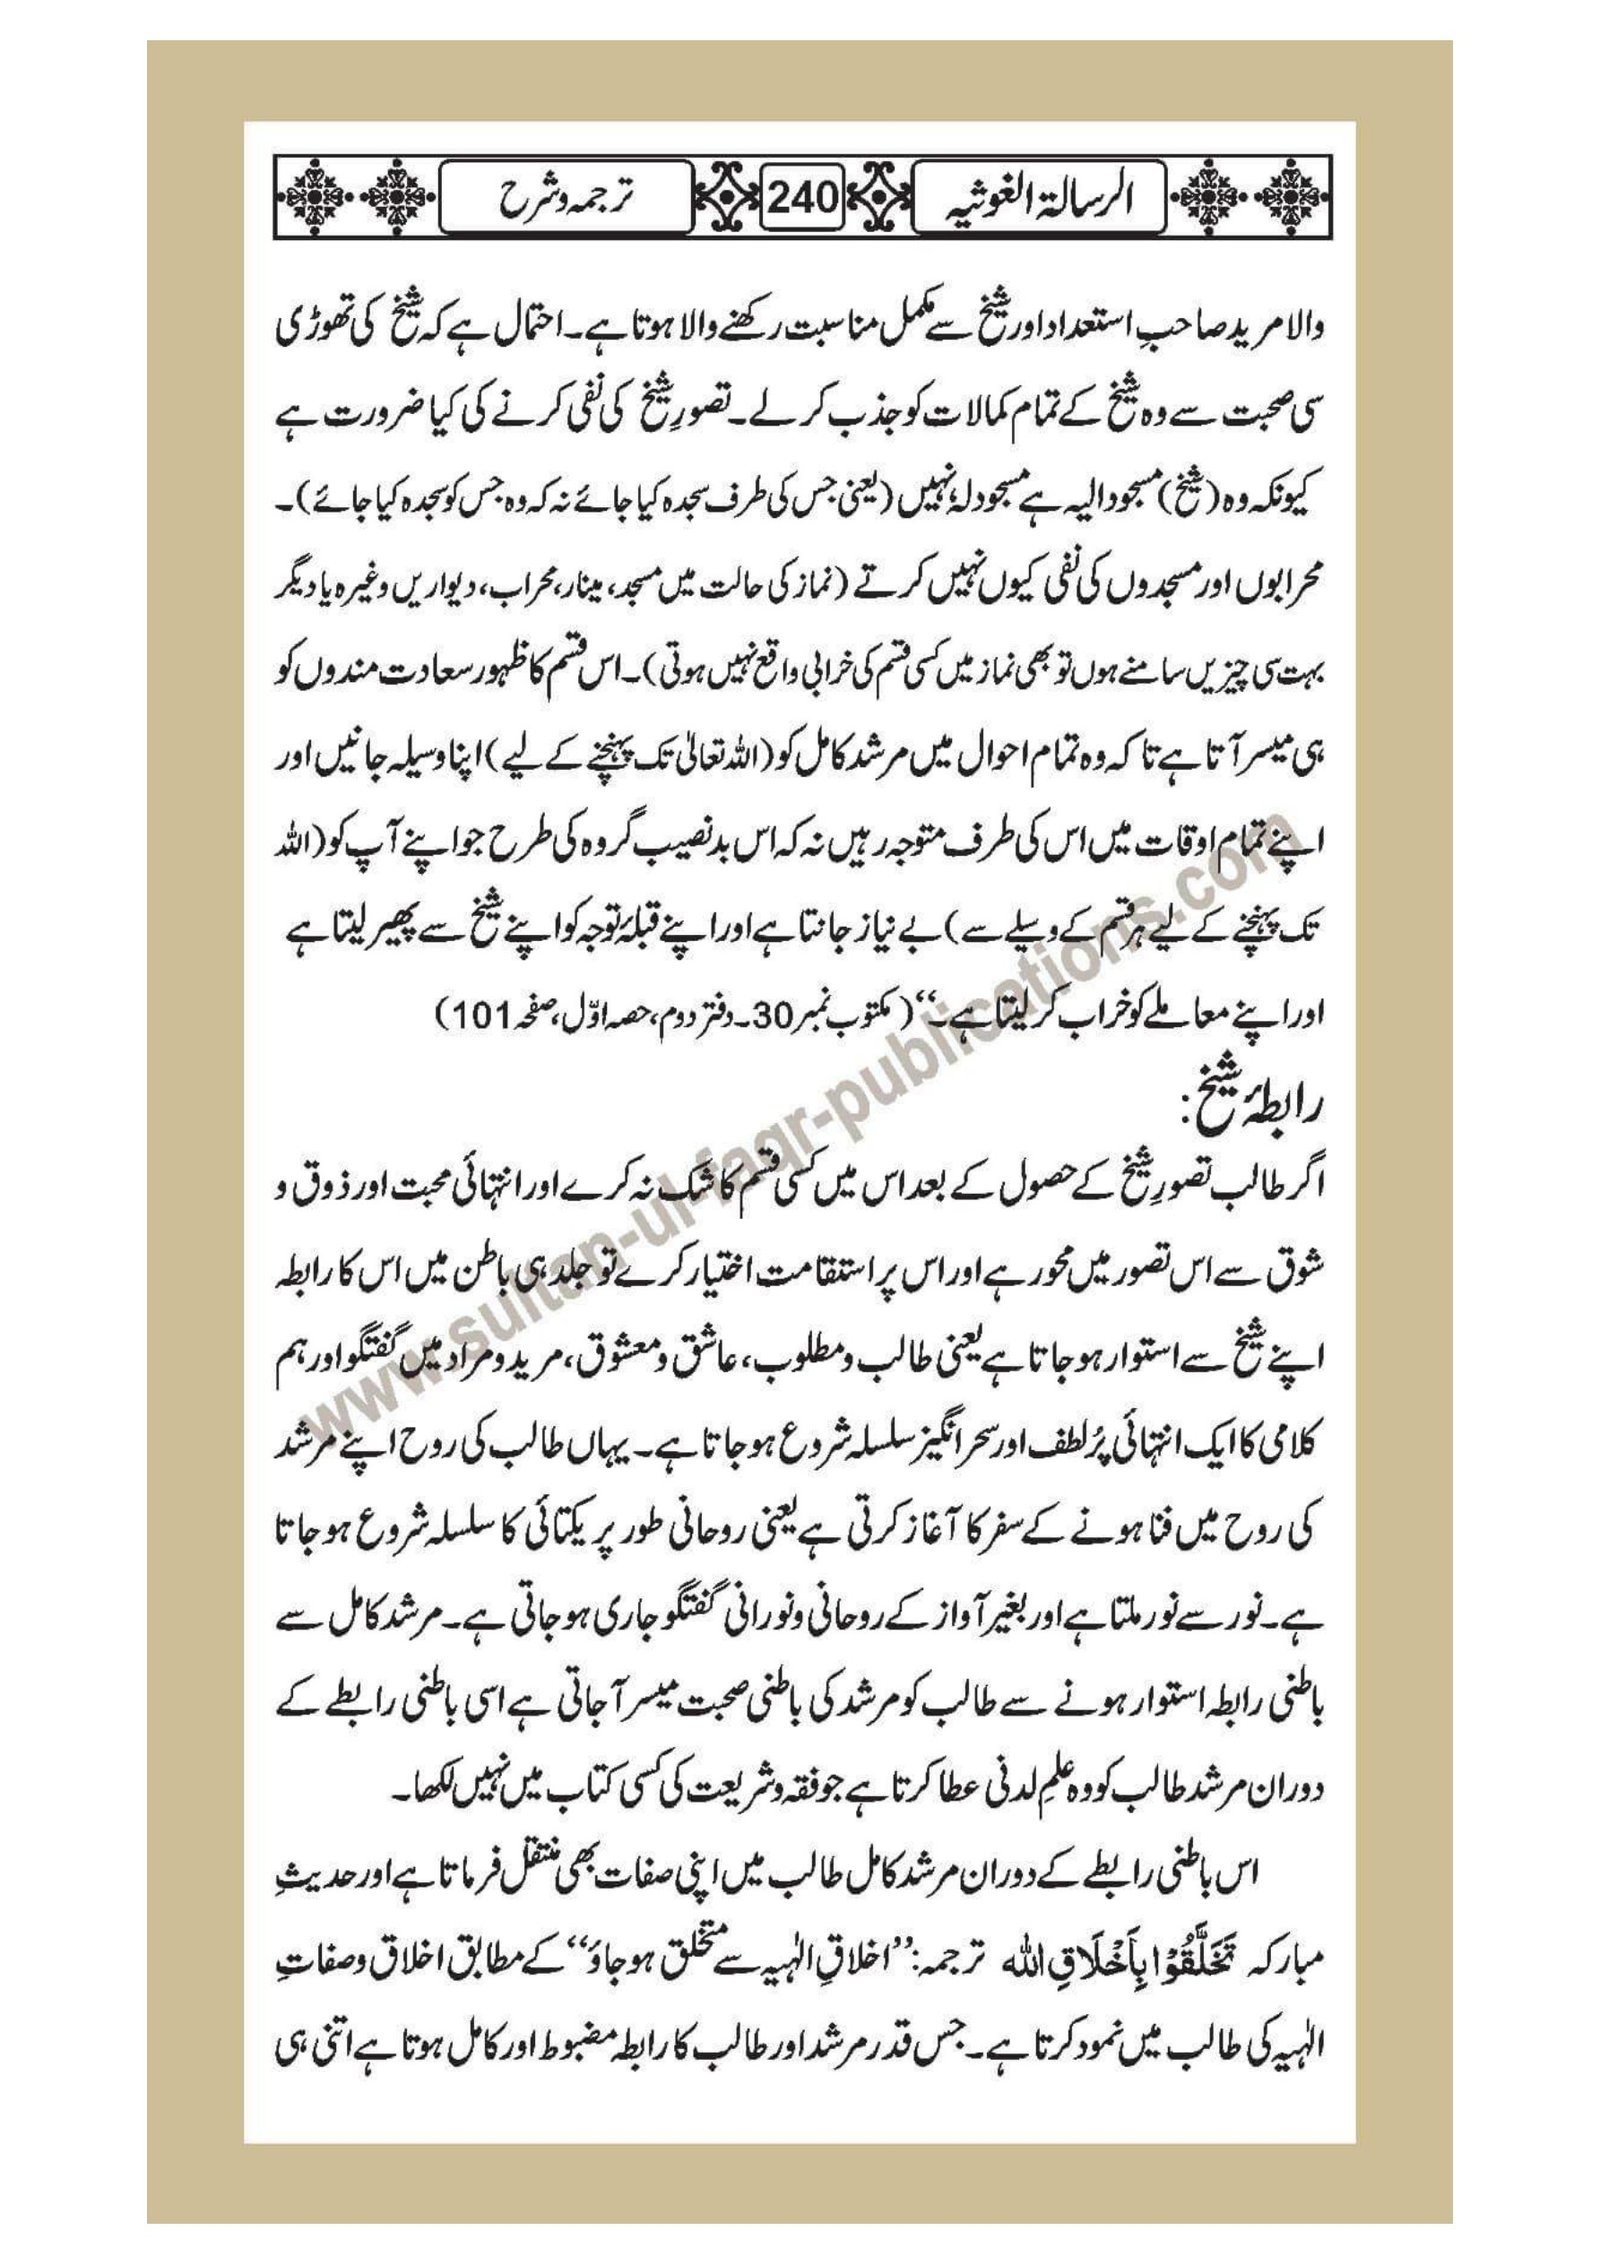 الرسالۃ الغوثیہ 240 ترجمہ و شرح
والا مرید صاحبِ استعداد اور شیخ سے مکمل مناسبت رکھنے والا ہوتا ہے۔ احتمال ہے کہ شیخ کی تھوڑی
سی صحبت سے وہ شیخ کے تمام کمالات کو جذب کر لے۔ تصورِ شیخ کی نفی کرنے کی کیا ضرورت ہے
کیونکہ وہ (شیخ) مسجود الیہ ہے مسجود لہٗ نہیں (یعنی جس کی طرف سجدہ کیا جائے نہ کہ وہ جس کو سجدہ کیا جائے)۔
محرابوں اور مسجدوں کی نفی کیوں نہیں کرتے (نماز کی حالت میں مسجد، مینار، محراب، دیواریں وغیرہ یا دیگر
بہت سی چیزیں سامنے ہوں تو بھی نماز میں کسی قسم کی خرابی واقع نہیں ہوتی)۔ اس قسم کا ظہور سعادت مندوں کو
ہی میسر آتا ہے تاکہ وہ تمام احوال میں مرشد کامل کو (اللہ تعالیٰ تک پہنچنے کے لیے) اپنا وسیلہ جانیں اور
اپنے تمام اوقات میں اس کی طرف متوجہ رہیں نہ کہ اس بدنصیب گروہ کی طرح جو اپنے آپ کو (اللہ
تک پہنچنے کے لیے ہر قسم کے وسیلے سے) بے نیاز جانتا ہے اور اپنے قبلۂ توجہ کو اپنے شیخ سے پھیر لیتا ہے
اور اپنے معاملے کو خراب کر لیتا ہے۔‘‘ (مکتوب نمبر 30۔ دفتر دوم، حصہ اوّل، صفحہ 101)
رابطۂ شیخ:
اگر طالب تصورِ شیخ کے حصول کے بعد اس میں کسی قسم کا شک نہ کرے اور انتہائی محبت اور ذوق و
شوق سے اس تصور میں محور ہے اور اس پر استقامت اختیار کرے تو جلد ہی باطن میں اس کا رابطہ
اپنے شیخ سے استوار ہو جاتا ہے یعنی طالب و مطلوب، عاشق و معشوق، مرید و مراد میں گفتگو اور ہم
کلامی کا ایک انتہائی پُر لطف اور سحر انگیز سلسلہ شروع ہو جاتا ہے۔ یہاں طالب کی روح اپنے مرشد
کی روح میں فنا ہونے کے سفر کا آغاز کرتی ہے یعنی روحانی طور پر یکتائی کا سلسلہ شروع ہو جاتا
ہے۔ نور سے نور ملتا ہے اور بغیر آواز کے روحانی و نورانی گفتگو جاری ہو جاتی ہے۔ مرشد کامل سے
باطنی رابطہ استوار ہونے سے طالب کو مرشد کی باطنی صحبت میسر آ جاتی ہے اسی باطنی رابطے کے
دوران مرشد طالب کو وہ علمِ لدنی عطا کرتا ہے جو فقہ و شریعت کی کسی کتاب میں نہیں لکھا۔
اس باطنی رابطے کے دوران مرشد کامل طالب میں اپنی صفات بھی منتقل فرماتا ہے اور حدیثِ
مبارکہ تَخَلَّقُوْا بِاَخْلَاقِ اللہ ترجمہ: ’’اخلاقِ الٰہیہ سے متخلق ہو جاؤ‘‘ کے مطابق اخلاق و صفاتِ
الٰہیہ کی طالب میں نمود کرتا ہے۔ جس قدر مرشد اور طالب کا رابطہ مضبوط اور کامل ہوتا ہے اتنی ہی
www.sultan-ul-faqr-publications.com